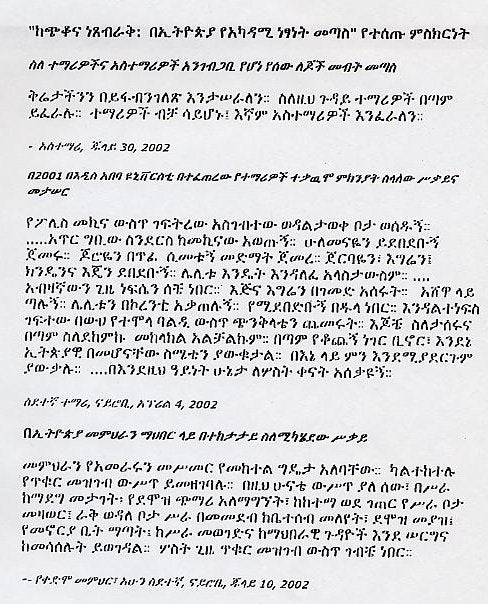 "ከጭቆና ነጸብራቅ: በኢትዮጵያ የአካዳሚ ነፃነት መጣስ" የተሰጡ ምስክርነት
ስለ ተማሪዎችና አስተማሪዎች አንገብጋቢ የሆነ የሰው ልጆች መብት መጣስ
ቅሬታችንን በይፋብንገለጽ እንታሠራለን። ስለዚህ ጉዳይ ተማሪዎች በጣም
ይፈራሉ። ተማሪዎች ብቻ ሳይሆኑ፤ እኛም አስተማሪዎች እንፈራለን።
- አስተማሪ, ጁላይ 30, 2002
በ2001 በአዲስ አበባ ዩኒቨርስቲ በተፈጠረው የተማሪዎች ተቃዉሞ ምክንያት ስላለው ሥቃይና
መታሠር
የፖሊስ መኪና ውስጥ ገፍትረው አስገብተው ወዳልታወቀ ቦታ ወሰዱኝ።
.....አጥር ግቢው ስንደርስ ከመኪናው አወጡኝ። ሁለመናዬን ይደበደቡኝ
ጀመሩ። ጆሮዬን በጥፊ ሲመቱኝ መድማት ጀመረ። ጀርባዬን፣ እግሬን፤
ክንዴንና እጄን ደበደቡኝ። ሌሊቱ እንዴት እንዳለፈ አላስታውስም። ....
አብዛኛውን ጊዜ ነፍሴን ስቼ ነበር። እጅና እግሬን በገመድ አሰሩት። አሸዋ ላይ
ጣሉኝ። ሌሊቱን በኮረንቲ አቃጠሉኝ። የሚደበድቡኝ በዱላ ነበር። እንዳልተነፍስ
ገፍተው በውሀ የተሞላ ባልዲ ውስጥ ጭንቅላቴን ጨመሩት። እጆቼ ስለታሰሩና
በጣም ስለደከምኩ መከላከል አልቻልኩም። በጣም የቆጨኝ ነገር ቢኖር፣ እንደኔ
ኢትዮጵያዊ በመሆናቸው ስሜቴን ያውቁታል። በእኔ ላይ ምን እንደሚያደርጉም
ያውቃሉ። ....በእንደዚህ ዓይነት ሁኔታ ለሦስት ቀናት አሰታዩኝ።
ስደተኛ ተማሪ, ናይሮቢ, አፕሬል 4, 2002
በኢትዮጵያ መምህራን ማህበር ላይ በተከታታይ ስለሚካሄደው ሥቃይ
መምህራን የአመራሩን መሥመር የመከተል ግዴታ አለባቸው። ካልተከተሉ
የጥቁር መዝገብ ውሥጥ ይመዘገባሉ። በዚህ ሁናቴ ውሥጥ ያለ ሰው፣ በሥራ
ከማደግ መታገት፣ የደሞዝ ጭማሪ አለማግኘት፣ ከከተማ ወደ ገጠር የሥራ ቦታ
መዛወር፤ ራቅ ወዳለ ቦታ ሥራ በመመደብ ከቤተሰብ መለየት፣ ደሞዝ መያዝ፤
የመኖርያ ቤት ማጣት፤ ከሥራ መወገድና ከማህበራዊ ጉዳዮች እንደ ሠርግና
ከመሳሰሉት ይወገዳል። ሦስት ጊዜ ጥቁር መዝገብ ውስጥ ገብቼ ነበር።
-- የቀድሞ መምህር፣ አሁን ስደተኛ, ናይሮቢ, ጁላይ 10, 2002